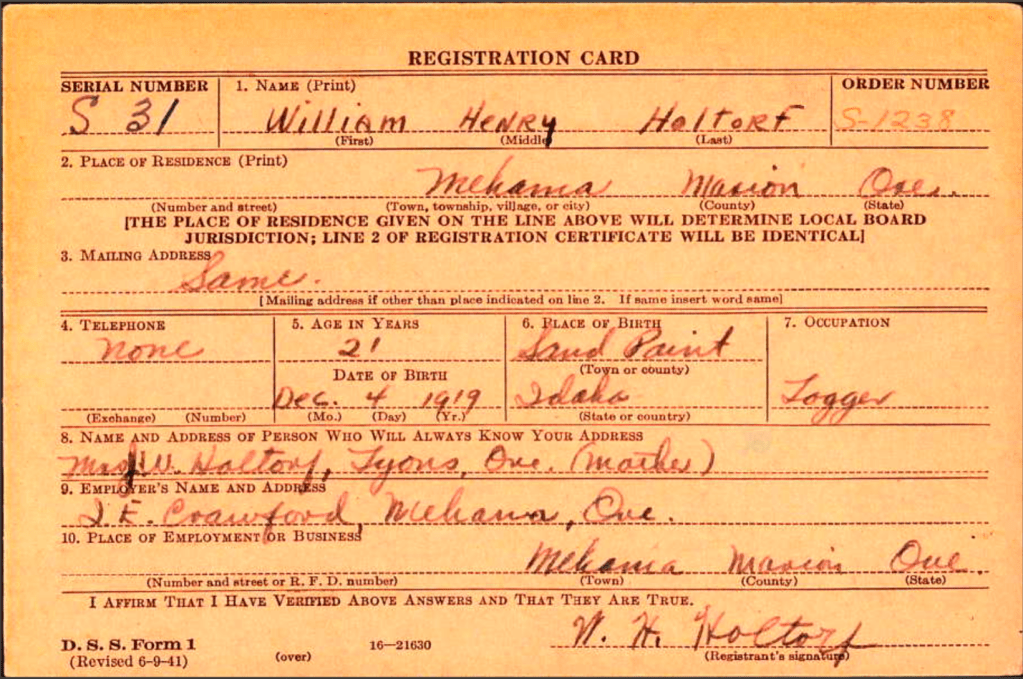 REGISTRATION CARD
SERIAL NUMBER 1. NAME (Print) ORDER NUMBER
S 31 William Henry Holtorf S-1238
(First) (Middle) (Last)
2. PLACE OF RESIDENCE (Print)
Mehama Marion Ore.
(Number and street) (Town, township, village, or city) (County) (State)
[THE PLACE OF RESIDENCE GIVEN ON THE LINE ABOVE WILL DETERMINE LOCAL BOARD
JURISDICTION; LINE 2 OF REGISTRATION CERTIFICATE WILL BE IDENTICAL]
3. MAILING ADDRESS
Same.
[Mailing address if other than place indicated on line 2. If same insert word same]
4. TELEPHONE 5. AGE IN YEARS 6. PLACE OF BIRTH 7. OCCUPATION
None 21 Sand Point
(Town or county)
DATE OF BIRTH
Dec. 4 1919 Idaho Logger
(Exchange) (Number) (Mo.) (Day) (Yr.) (State or country)
8. NAME AND ADDRESS OF PERSON WHO WILL ALWAYS KNOW YOUR ADDRESS
Mrs W. Holtorf, Lyons, Ore. (Mother)
9. EMPLOYER'S NAME AND ADDRESS
Crawford, Mehama, Ore.
10. PLACE OF EMPLOYMENT OR BUSINESS
Mehama Marion Ore.
(Number and street or R. F. D. number) (Town) (County) (State)
I AFFIRM THAT I HAVE VERIFIED ABOVE ANSWERS AND THAT THEY ARE TRUE.
W. H. Holtorf
D. S. S. Form 1 16—21630
(Revised 6-9-41) (over) (Registrant's signature)